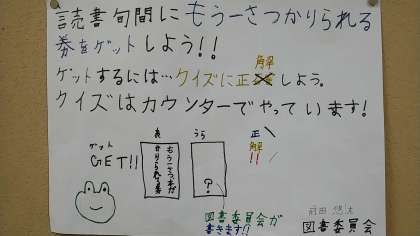 読書旬間にもう一さつかりられる
券をゲットしよう!!
解
ゲットするには…クイズに正しよう。
クイズはカウンターでやっています!
ゲット
GET!!
表
もう一さつ本が
かりられる券
うら
?
正
解
!!
図書委員会が
書きます!!
前田悠太
図書委員会